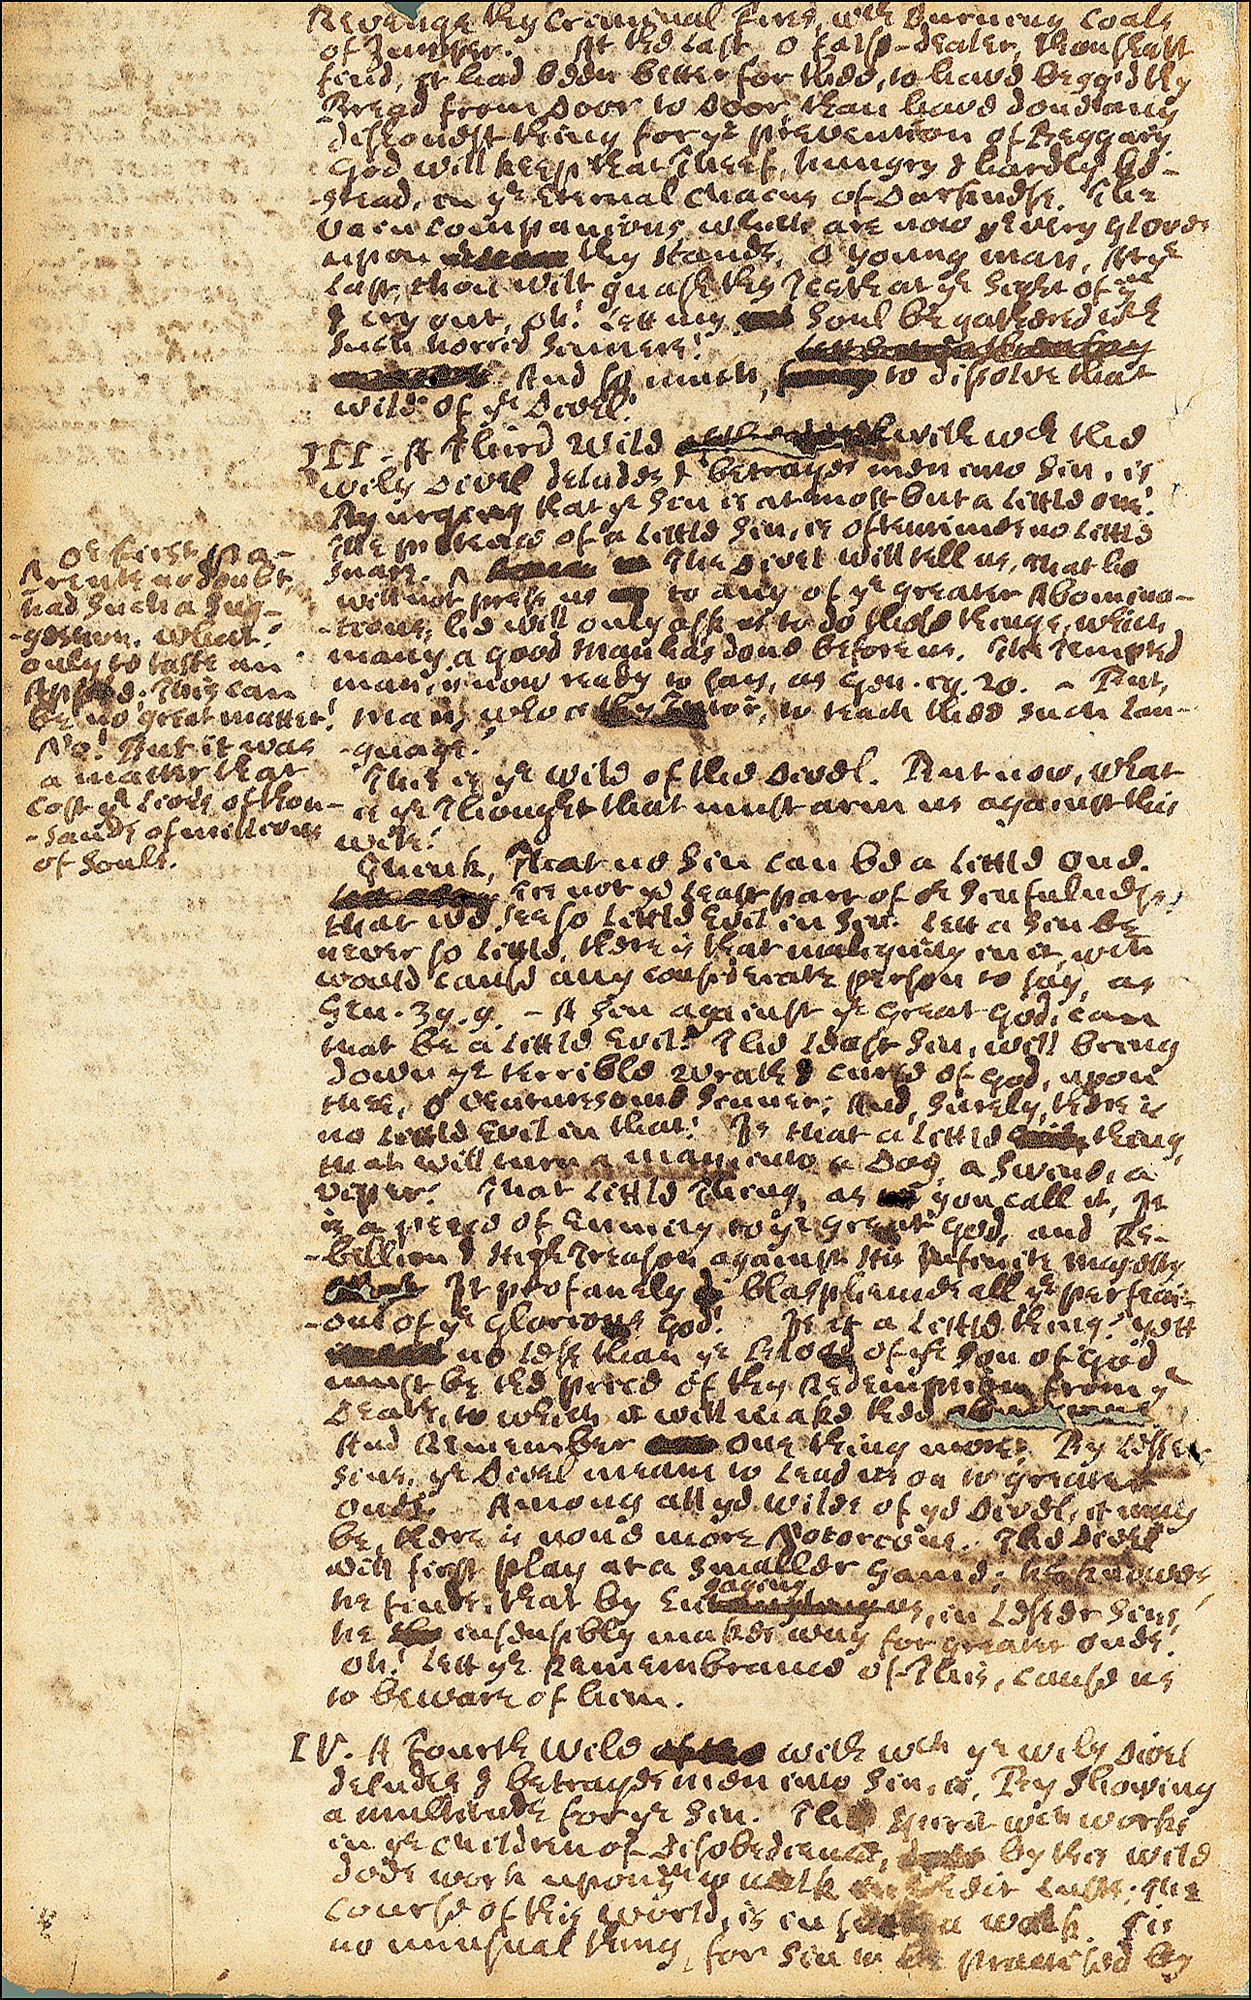 Revenge thy Criminal Fires, with burning Coals
of Juniper. At the Last, O false-dealer, thou shalt
find, it had been better for thee, to have begg'd thy
Bread from Door to Door, than have done any
dishonest thing for ye prevention of Beggary.
God will keep that Theef, hungry & hardly be-
-stead, in ye Eternal Chains of Darkness. The
vain companions which are now ye very Gloves
upon thy Hands, O young man, att ye
Last, thou wilt gnash thy Teeth at ye Sight of ym
& cry out, oh! Lett not my Soul be gathered with
such horrid Sinners!
And so much, to dissolve that
wile of ye Divel!
III. A Third Wile with wch the
wily Divel deludes & betrayes men into Sin, is
By urging that ye Sin is at most but a Little one!
The pretence of a Little Sin, is oftentimes no Little
snare. ^ The Divel will tell us, that he
will not press us to any of ye greater Abomina-
-tions; he will only ask us to do those things, which
many a good man has done before us. The Tempted
man, is now ready to say, as Gen. 19. 20. - But,
man, who is thy Tutor, to teach thee such Lan-
-guage?
^ Or first pa-
-rents no doubt,
had such a Sug-
-gestion. What!
only to taste an
Apple! This can
be no great matter!
No! But it was
a matter that
cost ye Lives of thou-
-sands of millions
of Souls.
This is ye wile of the Divel. But now, what
is ye Thought that must arm us against this
wile?
Think, That no Sin can be a Little one.
Tis not ye Least part of or Sinfulness,
that we see so Little Evil in Sin. Lett a Sin be
never so Little, there is that malignity in it, wch
would cause any considerate person to say, as
Gen. 39. 9. - A Sin against ye Great God, can
that be a Little Evil? The Least Sin, will bring
down ye terrible wrath & curse of God, upon
thee, O venturesome Sinner; And, surely, there is
no Little Evil in that! Is that a Little thing,
that will turn a man into a Dog, a Swine, a
viper? That Little Thing, as you call it, It
is a peece of Enmity to ye great God, and Re-
-bellion & High Treason against His Infinite Majesty
It profanely blasphemes all ye perfecti-
-ons of ye Glorious God! Is it a Little thing? yett
no Less than ye Blood of ye Son of God
must be the price of thy Redemption from ye
Death, to which it will make thee
And Remember one thing more; By Lesser
Sins, ye Divel means to Lead us on to greater
ones. Among all ye wiles of ye Divel, it may
be, there is none more Notorious. The Divel
will first play at a smaller Game; he knowes,
he finds, that by Engaging us, in Lesser Sins,
he insensibly makes way for greater ones.
oh! Lett ye Remembrance of This, cause us
to beware of him.
IV. A Fourth Wile with wch ye wily Divel
deludes & betrayes men into Sin, is, By Showing
a multitude for ye Sin. The Spirit wch works
in ye children of Disobedience, by this wile
does work upon ym to walk Lusts. The
course of this world, is in such a walk. Tis
no unusual thing, for Sin to be practised by